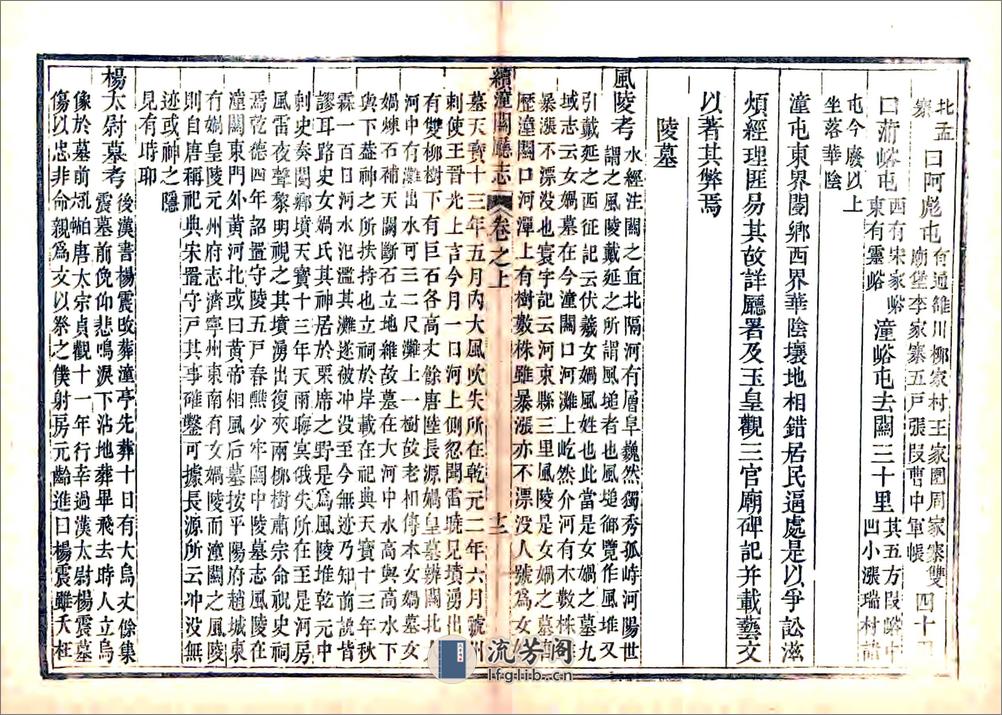 北孟
寨 曰阿彪屯 雒川柳家村王家園周家寨雙
廟堡李家寨五戸張叚曹中軍帳 四十
曰蒲峪屯 西有宋家峪
東有靈峪 潼峪屯去關三十里 其五方叚峪中
凹小漲瑞村諸
屯今廢以上
坐落華陰
潼屯東界閿鄉西界華陰壤地相錯居民逼處是以爭訟滋
煩經理匪易其故詳廳署及玉皇觀三官廟碑記并載藝文
以著其弊焉
陵墓
風陵考 水經注關之直北隔河有層阜巍然獨秀孤峙河陽世
謂之風陵戴延之所謂風塠者也風塠御覽作風堆又
引戴延之西征記云伏羲女媧風姓也此當是女媧之墓九
域志云女媧墓在今潼關口河灘上屹然介河有木數株
暴漲不漂沒也寰宇記云河東縣三里風陵是女媧之墓
歷潼關口河潬上有樹數株雖暴漲亦不漂沒人號爲女
續潼關廳志 卷之上 十二
墓天寶十三年五月內大風吹失所在乾元二年六月號州
刺使王晉光上言今月一日河上側忽聞雷聲見墳湧出
有雙柳樹下有巨石各高丈餘唐陸長源媧皇墓辨關北
河中有灘出水可三二尺灘上一樹故老相傳本女媧墓
媧煉石補天關斷石立地維故墓在大河中水高與高水下
與下葢神之所扶持也立祠於岸載在祀典天寶十三年秋
霖一百日河水汜濫其灘遂被沖没至今無迹乃知前說皆
謬耳路史女媧氏其神居於栗席之野是爲風陵堆乾元中
刺史奏閿鄉墳天寶十三年天雨晦冥俄失所在至是河
風雷夜聲黎明視之其墳湧出復夾兩柳樹肅宗命祝史
焉乾德四年詔置守陵五戸春醮少牢關中陵墓志風陵在
潼關東門外黃河北或曰黃帝相風后墓按平陽府趙城東
有媧皇陵元州府志濟寧州東南有女媧陵而潼關之風陵
則自唐稱祀典宋置守戸其事確鑿可據長源所云沖没無
迹或神之隱
見有時耶
楊太尉墓考 後漢書楊震改葬潼亭先葬十日有大鳥丈餘集
震墓前俛仰悲鳴淚下沾地葬畢飛去時人立鳥
像於墓前 唐太宗貞觀十一年行幸過漢太尉楊震墓
傷以忠非命親爲文以祭之僕射房元齡進曰楊震雖夭枉
流芳阁
lfglib.cn